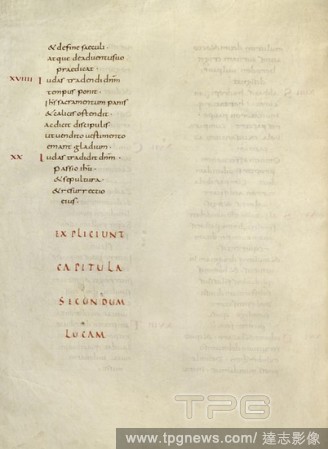 & define saeculi ·
atque deaduentusuo
praedicat ·
XVIIII Iudas tradendi dnm
tempus ponit ·
Ihs sacramentum panis
& calicis ostendit ·
ac dicit discipulis
ut uendito uestimento
emant gladium ·
XX Iudas tradidit dnm ·
Passio ihu ·
& sepultura ·
& resurrectio
eius ·
EXPLICIUNT
CAPITULA
SECUNDUM
LUCAM
TPG
www.tpgnews.com/達志影像